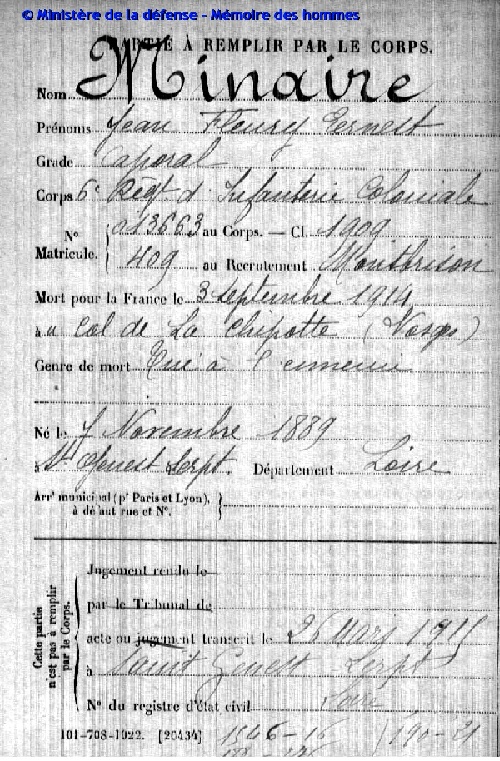 © Ministère de la défense - Mémoire des hommes
PARTIE À REMPLIR PAR LE CORPS.
Nom Minaire
Prénoms Jean Fleury Ernest
Grade Caporal
Corps 6e Régt d'Infanterie Coloniale
N° Matricule. { 013663 au Corps. — Cl. 1909
409 au Recrutement Montbrison
Mort pour la France le 3 Septembre 1914
à u Col de La Chipotte (Vosges)
Genre de mort Tué à l'ennemi
Né le 7 Novembre 1889
à St Genest Lerpt. Département Loire
Arrt municipal (pr Paris et Lyon), à défaut rue et N°.
Cette partie n'est pas à remplir par le Corps.
Jugement rendu le
par le Tribunal de
acte ou jugement transcrit le 26 Mars 1915
à Saint Genest Lerpt
Loire
N° du registre d'état civil
101-708-1022. [26434] 1546-16 190-21